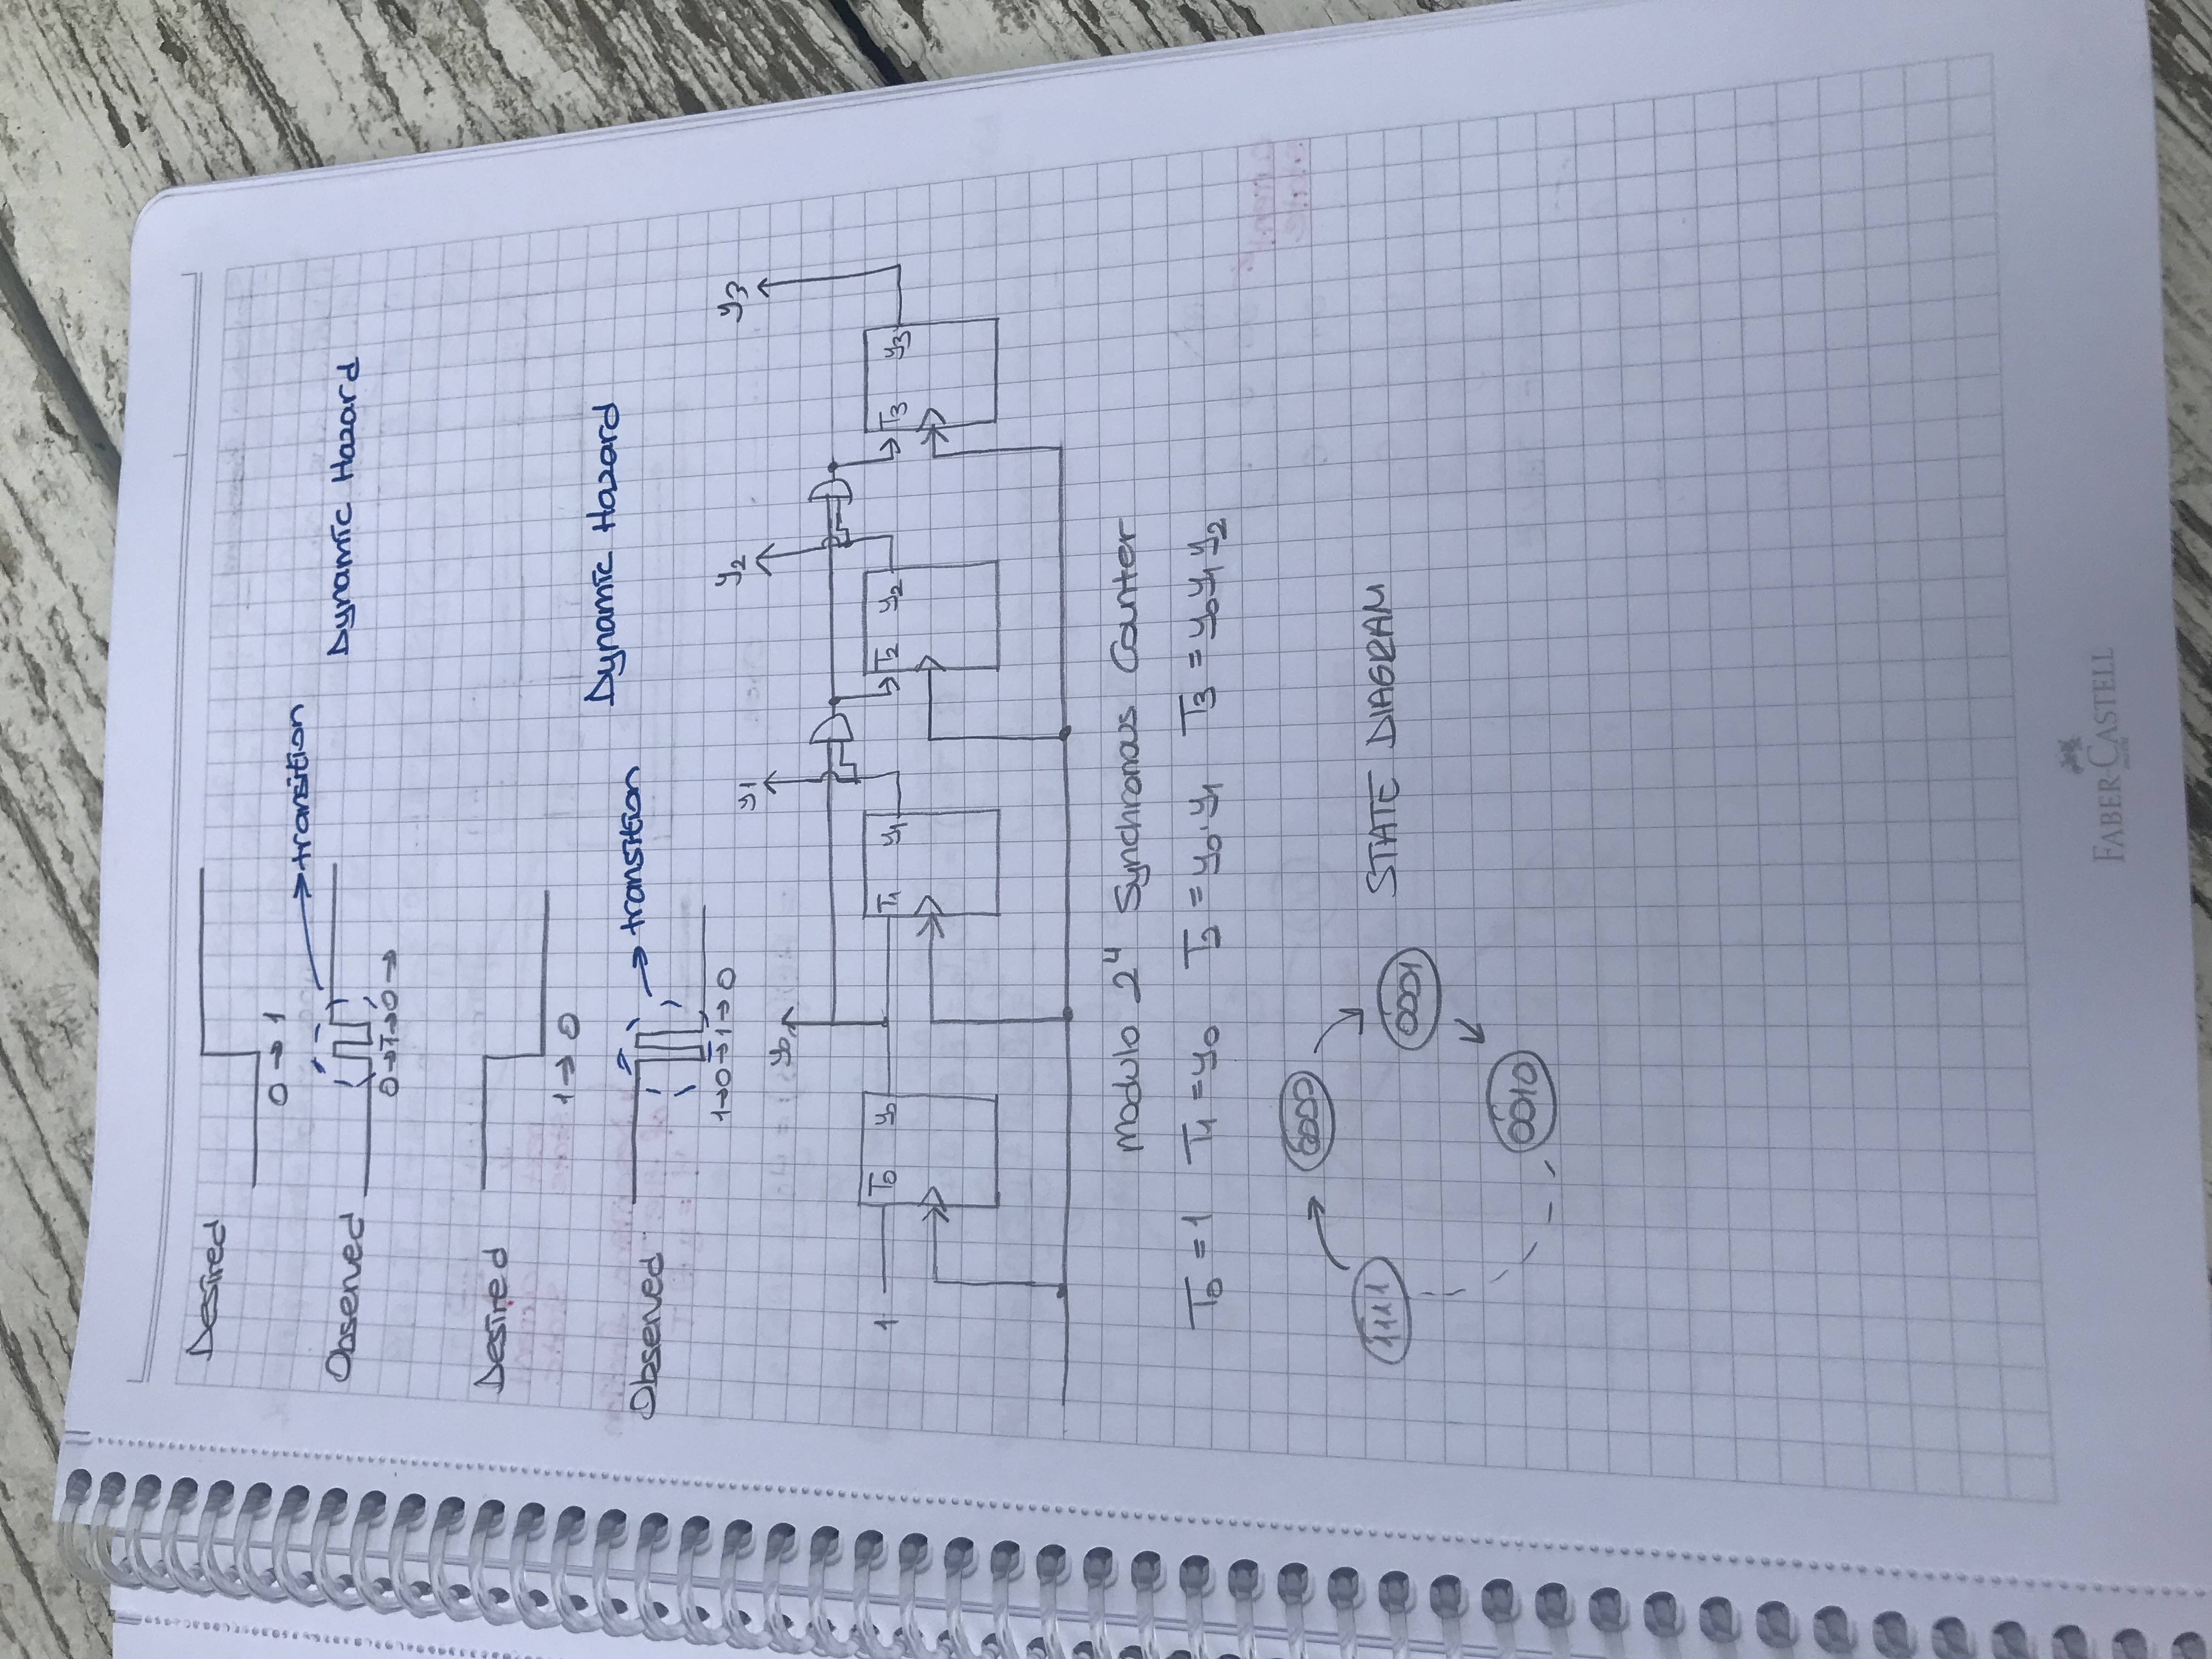 Desired
0 → 1
→ transition
Observed
Dynamic Hazard
0→1→0→
Desired
1→ 0
Dynamic Hazard
Observed
→ transition
1→0→1→0
y0 y1 y2 y3
1 T0 y0 T1 y1 T2 y2 T3 y3
Modulo 2⁴ Synchronous Counter
T0 = 1 T1 = y0 T2 = y0·y1 T3 = y0y1y2
0000
1111
0001
STATE DIAGRAM
0010
FABER-CASTELL